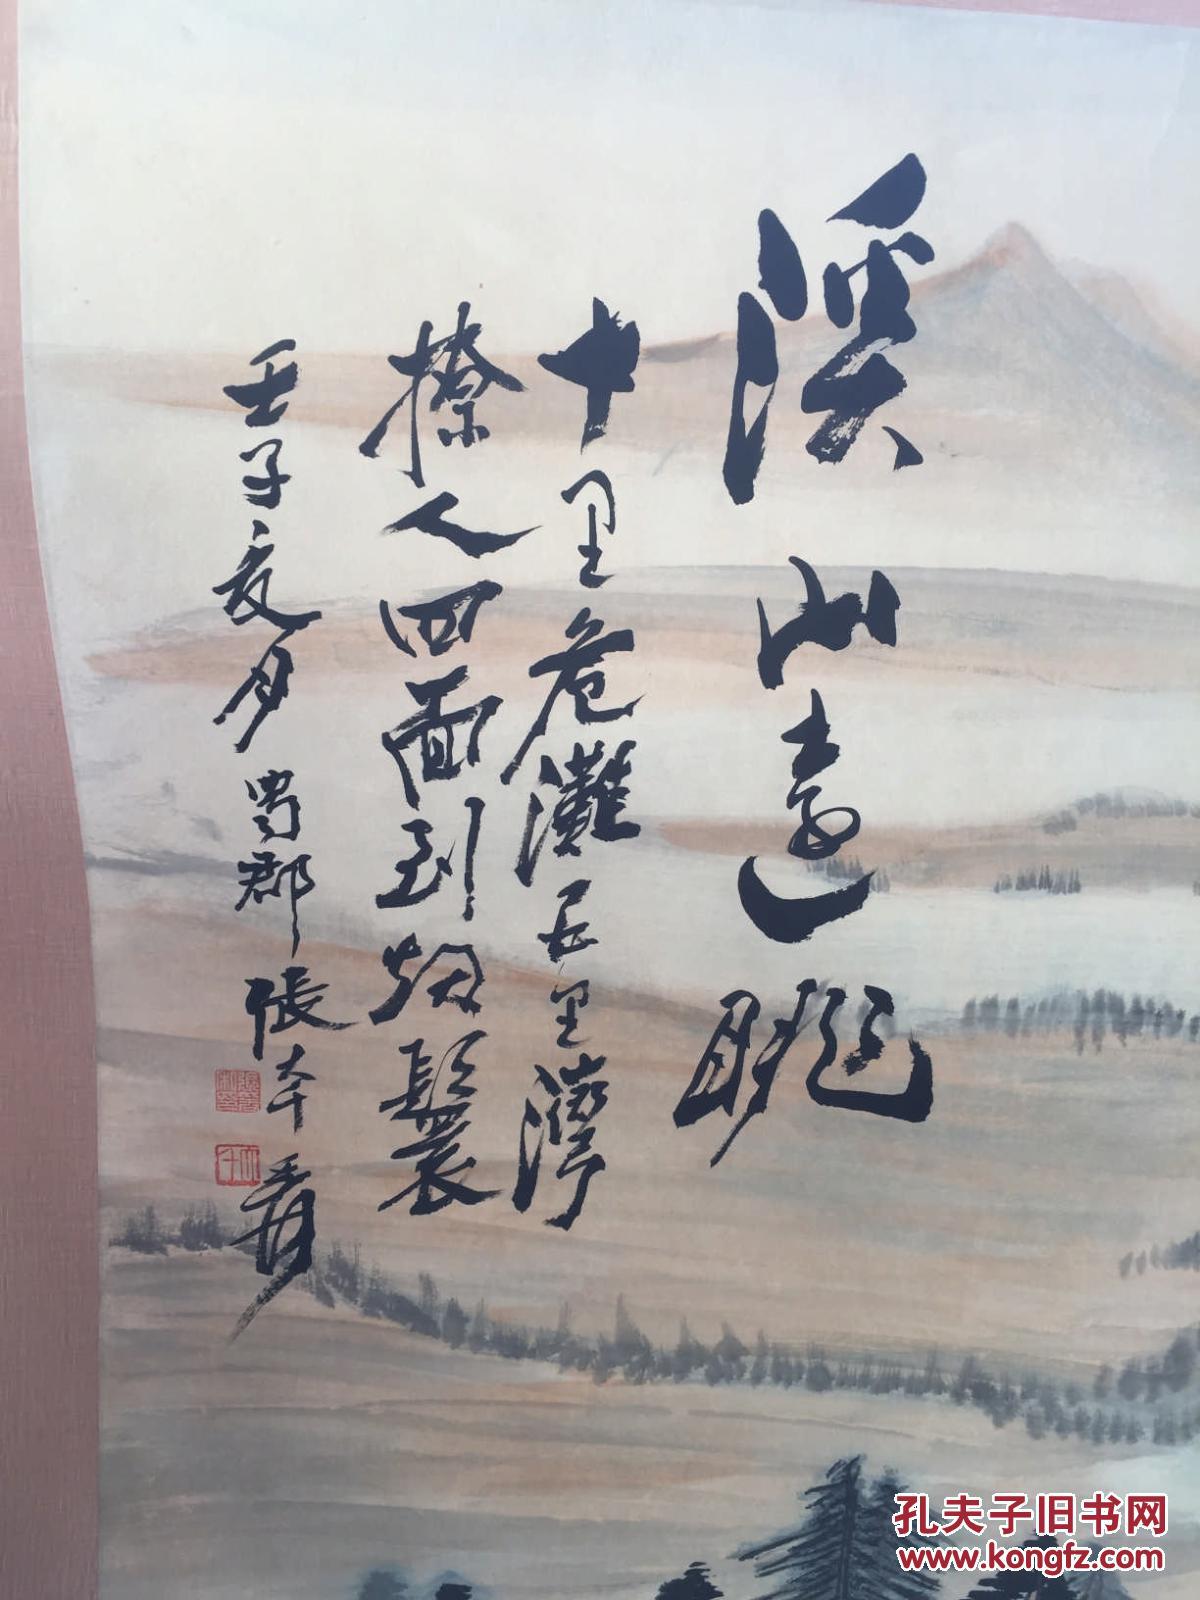 溪山遠眺
十里危灘五里灣
撩人四面到烟鬟
壬子夏月蜀郡張大千爰
孔夫子旧书网
www.kongfz.com